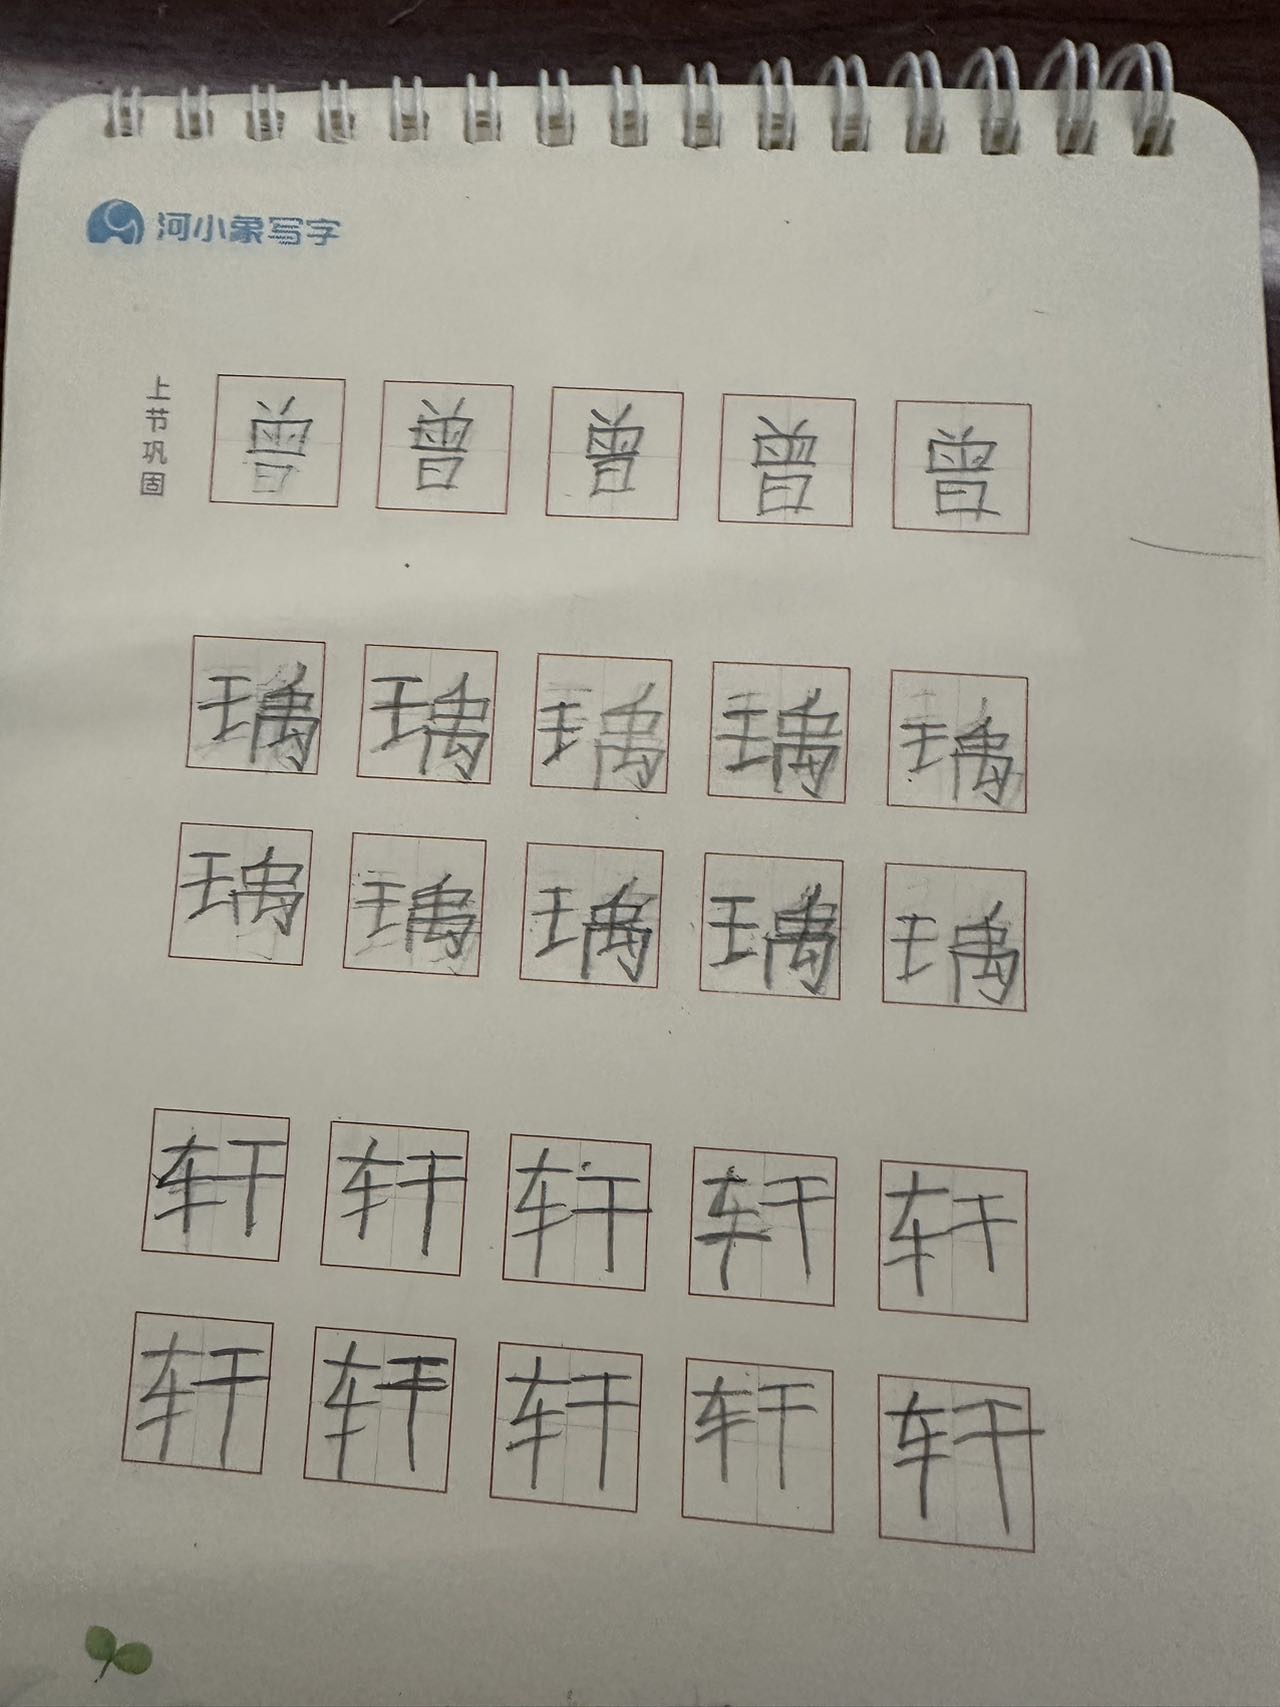 河小象写字
上节巩固
曾 曾 曾 曾 曾
瑀 瑀 瑀 瑀 瑀
瑀 瑀 瑀 瑀 瑀
轩 轩 轩 轩 轩
轩 轩 轩 轩 轩